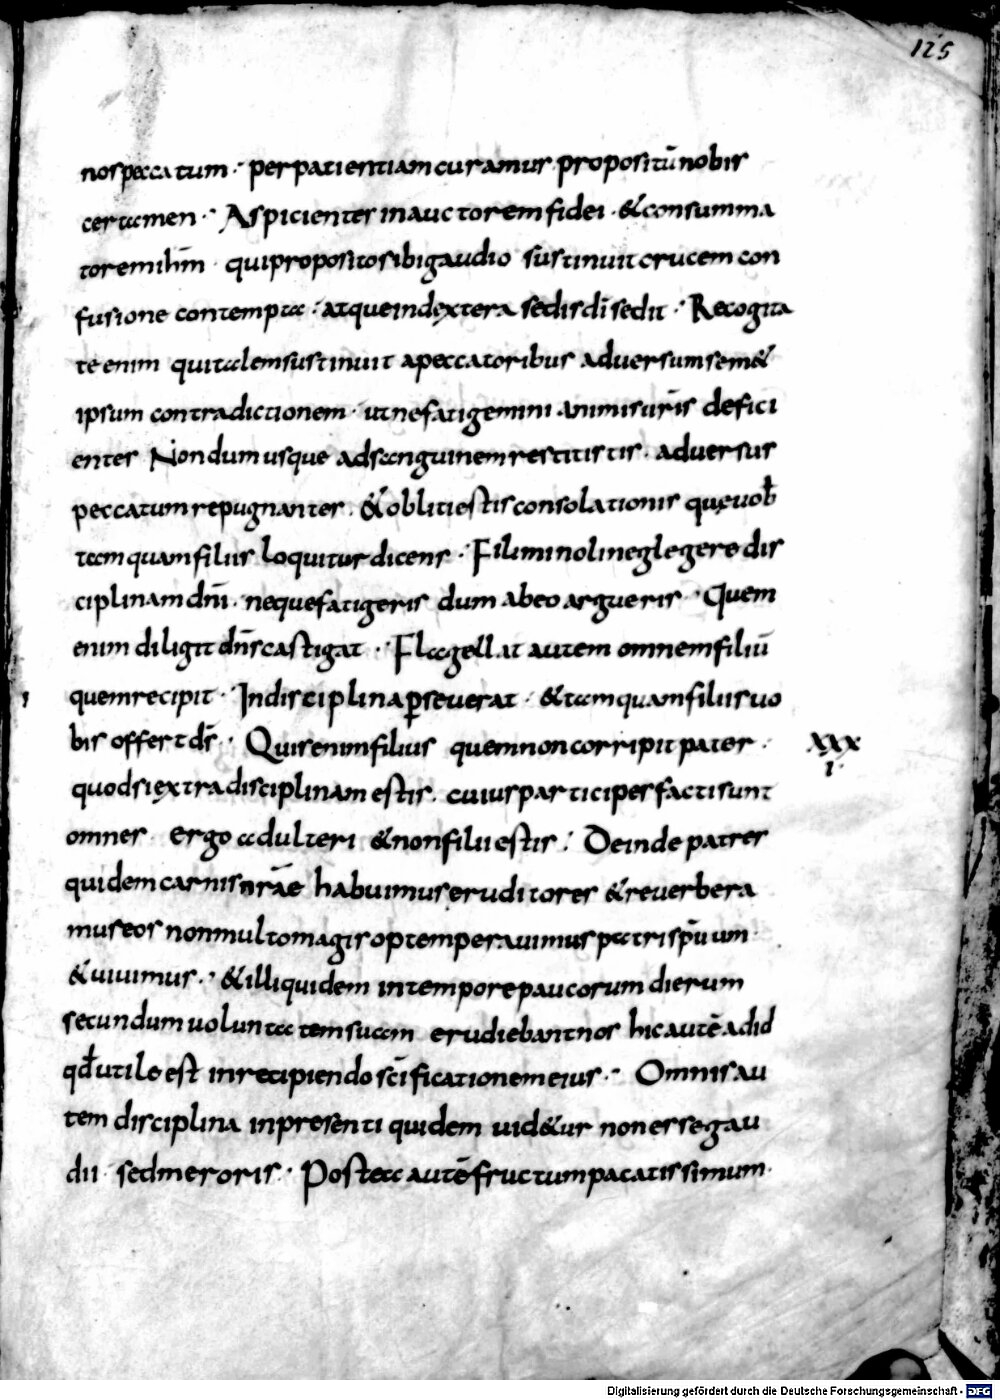 125
nos peccatum · per patientiam curamus propositū nobis
certamen · Aspicientes in auctorem fidei · & consumma
torem ihm̄ qui proposito sibi gaudio sustinuit crucem con
fusione contempta · atque in dextera sedis dī sedit · Recogita
te enim qui talem sustinuit a peccatoribus adversum sem&
ipsum contradictionem · ut ne fatigemini animis ur̄is defici
entes Nondum usque ad sanguinem restitistis · adversus
peccatum repugnantes · & obliti estis consolationis quę vob̄
tamquam filiis loquitur dicens · Fili mi noli neglegere dis
ciplinam dn̄i · neque fatigeris dum ab eo argueris · Quem
enim diligit dn̄s castigat · Flagellat autem omnem filiū
quem recipit · In disciplina ꝑseverat · & tamquam filiis vo
bis offert ds̄ · Quis enim filius quem non corripit pater ·
XXX
I
quod si extra disciplinam estis · cuius participes facti sunt
omnes ergo adulteri & non filii estis · Deinde patres
quidem carnis nr̄ae habuimus eruditores & reverbera
mus eos non multo magis optemperavimus patri sp̄uum
& vivimus · & illi quidem in tempore paucorum dierum
secundum voluntatem suam erudiebant nos hic autē ad id
qd̄ utile est in recipiendo sc̄ificationem eius · Omnis au
tem disciplina in presenti quidem vid&ur non esse gau
dii sed meroris · Postea autē fructum pacatissimum
Digitalisierung gefördert durch die Deutsche Forschungsgemeinschaft - DFG